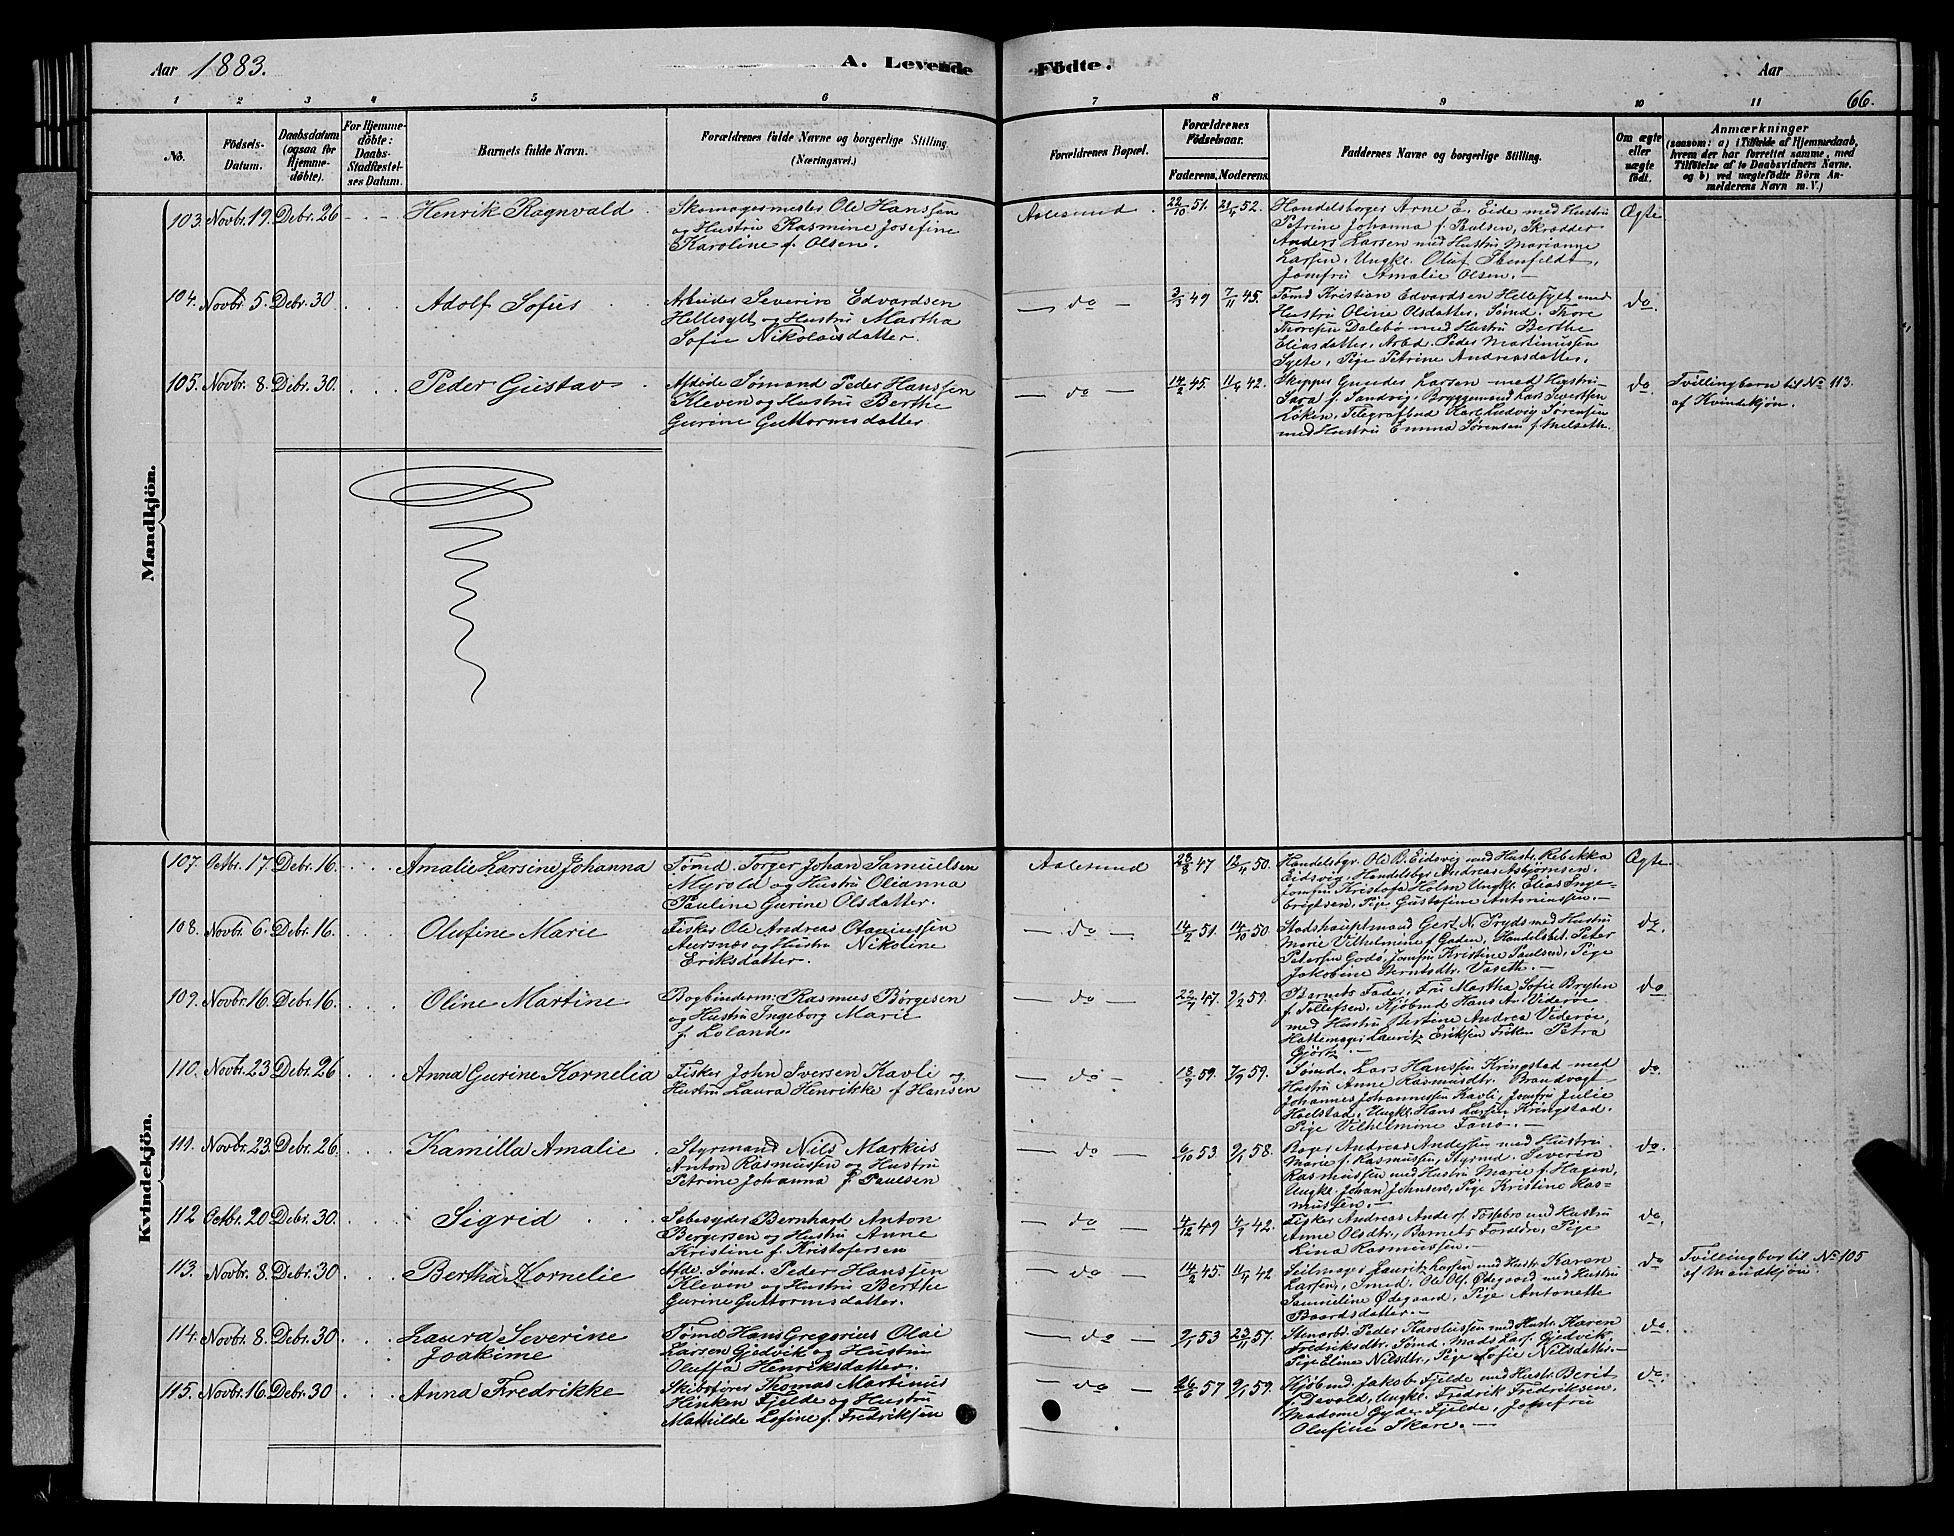 Aar 1883.
A. Levende Födte.
Aar
66.
1 2 3 4 5 6 7 8 9 10 11
No.
Födsels-Datum.
Daabsdatum (ogsaa for Hjemme-døbte).
For Hjemme-døbte: Daabs-Stadfæstel-ses Datum.
Barnets fulde Navn.
Forældrenes fulde Navne og borgerlige Stilling. (Næringsvei.)
Forældrenes Bopæl.
Forældrenes Födselsaar.
Faderens. Moderens.
Faddernes Navne og borgerlige Stilling.
Om ægte eller uægte födt.
Anmærkninger
(saasom: a) i Tilfælde af Hjemmedaab,
hvem der har forrettet samme, med
Tilföielse af to Daabsvidners Navne,
og b) ved uægtefødte Börn An-
melderens Navn m. V.)
Mandkjön.
103. Novbr. 19. Debr. 26 - - - Henrik Ragnvald
Skomagermester Ole Hanssen
og Hustru Rasmine Josefine
Karoline f. Olsen.
Aalesund. 22/10 51. 21/4 52.
Handelsborger Arne E. Eide med Hustru
Petrine Johanna f. Paulsen, Skrædder
Anders Larsen med Hustru Marianne
Larsen, Ungkl. Oluf Stenfeldt,
Jomfru Amalie Olsen. —
Ægte
104. Novbr. 5. Debr. 30 . . . Adolf Sofus
Arbeider Severin Edvardsen
Hellesylt og Hustru Martha
Sofie Nikolaisdatter.
— do — 3/3 49 7/11 45.
Tømd Kristian Edvardsen Hellesylt med
Hustru Oline Olsdatter, Sømd. Thore
Thoresen Dalebø med Hustru Berthe
Eliasdatter, Arbd. Peder Martinussen
Sylte, Pige Petrine Andreasdatter.
do.
105. Novbr. 8. Debr. 30. . . . Peder Gustav
Afdøde Sømand Peder Hanssen
Kleven og Hustru Berthe
Gurine Guttormsdatter.
— do — 14/2 45. 11/4 42.
Skipper Gunder Larsen med Hustru
Sara f. Sandvig, Bryggemand Lars Sivertsen
Løken, Telegrafbud Karl Ludvig Sørensen
med Hustru Emma Sørensen f. Melseth.
do.
Tvillingbarn til No 113.
af Kvindekjøn.
Kvindekjön.
107. Octbr. 17. Debr. 16. . . . Amalie Larsine Johanna
Tømd. Torger Johan Samuelsen
Myrold og Hustru Olianna
Pauline Gurine Olsdatter.
Aalesund 28/8 47 12/4 50.
Handelsbgr. Ole B. Eidsvig med Hustr. Rebekka
Eidsvig, Handelsbgr Andreas Asbjørnsen,
Jomfru Kristofa Holm Ungkl. Elias Inge-
brigtsen, Pige Gustafine Antoniussen. —
Ægte.
108. Novbr. 6. Debr. 16. . . . Olufine Marie
Fisker Ole Andreas Otaniussen
Aursnæs og Hustru Nikoline
Eriksdatter.
— do — 14/2 51. 14/10 50.
Stadshauptmand Gert N. Pryds med Hustru
Marie Vilhelmine f. Gaden, Handelsbet. Peter
Petersen Godø, Jomfru Kristine Paulsen, Pige
Jakobine Berntsdtr. Vaseth. —
do.
109. Novbr. 16. Debr. 16. . . . Oline Martine
Bogbinderm. Rasmus Børgesen
og Hustru Ingeborg Marie
f. Loland.
— do — 22/7 47. 9/2 59.
Barnets Fader, Fru Martha Sofie Brylen
f. Tollefsen, Kjøbmd Hans A. Viderøe
med Hustru Bertine Andrea Viderøe,
Hattemager Lauritz Eriksen Frøken Petra
Gjørtz. —
do
110. Novbr. 23 Debr. 26 . . . Anna Gurine Kornelia
Fisker John Iversen Kavli og
Hustru Laura Henrikke f. Hansen
— do — 18/9 59. 7/9 59.
Sømd. Lars Hanssen Kringstad med
Hustru Anne Rasmusdtr. Brandvagt
Johannes Johannessen Kavli, Jomfru Julie
Hoelstad, Ungkl. Hans Larsen Kringstad.
Pige Vilhelmine Tonø. —
do
111. Novbr. 23. Debr. 26. . . . Kamilla Amalie
Styrmand Nils Markus
Anton Rasmussen og Hustru
Petrine Johanna f. Paulsen
— do — 6/10 53. 9/1 58.
Bager Andreas Andersen med Hustru
Marie f. Rasmussen, Styrmd. Severin
Rasmussen med Hustru Marie f. Hagen,
Ungkl. Johan Johnsen, Pige Kristine Ras-
mussen. —
do.
112 Octbr. 20 Debr. 30. . . . Sigrid
Sæbesyder Bernhard Anton
Bergersen og Hustru Anne
Kristine f. Kristofersen
— do — 4/12 49 4/9 42.
Fisker Andreas Anders. Fossebro med Hustru
Anne Olsdtr., Barnets Forældre, Pige
Lina Rasmussen. —
do.
113. Novbr. 8. Debr. 30. . . . Bertha Kornelie
Afde. Sømd. Peder Hanssen
Kleven og Hustru Berthe
Gurine Guttormsdatter.
— do — 14/2 45. 11/4 42
Seilmager Lauritz Larsen med Hustr. Karen
Larsen, Smed. Ole Ols. Ødegaard med Hustru
Samueline Ødegaard, Pige Antonette
Baardsdatter. —
do
Tvillingbar til No 105
af Mandkjøn.
114. Novbr. 8 Debr. 30. . . . Laura Severine
Joakime
Tømd Hans Gregorius Olai
Larsen Gjedvik og Hustru
Oluffa Henriksdatter.
— do — 9/1 53 23/11 57.
Stenarb. Peder Karolussen med Hustr. Karen
Fredriksdtr. Sømd. Mads Lars. Gjedvik,
Pige Eline Nilsdtr., Pige Sofie Nilsdatter. —
do.
115. Novbr. 16. Debr. 30 . . . Anna Fredrikke
Skibsfører Thomas Martinus
Henken Fjelde og Hustru
Mathilde Lofine f. Fredriksen
— do — 26/6 57 9/1 59.
Kjøbmd. Jakob Fjelde med Hustr. Berit
f. Devold, Ungkl. Fredrik Fredriksen.
Madame Gyda Fjelde, Jomfru
Olufine Skare. —
do.